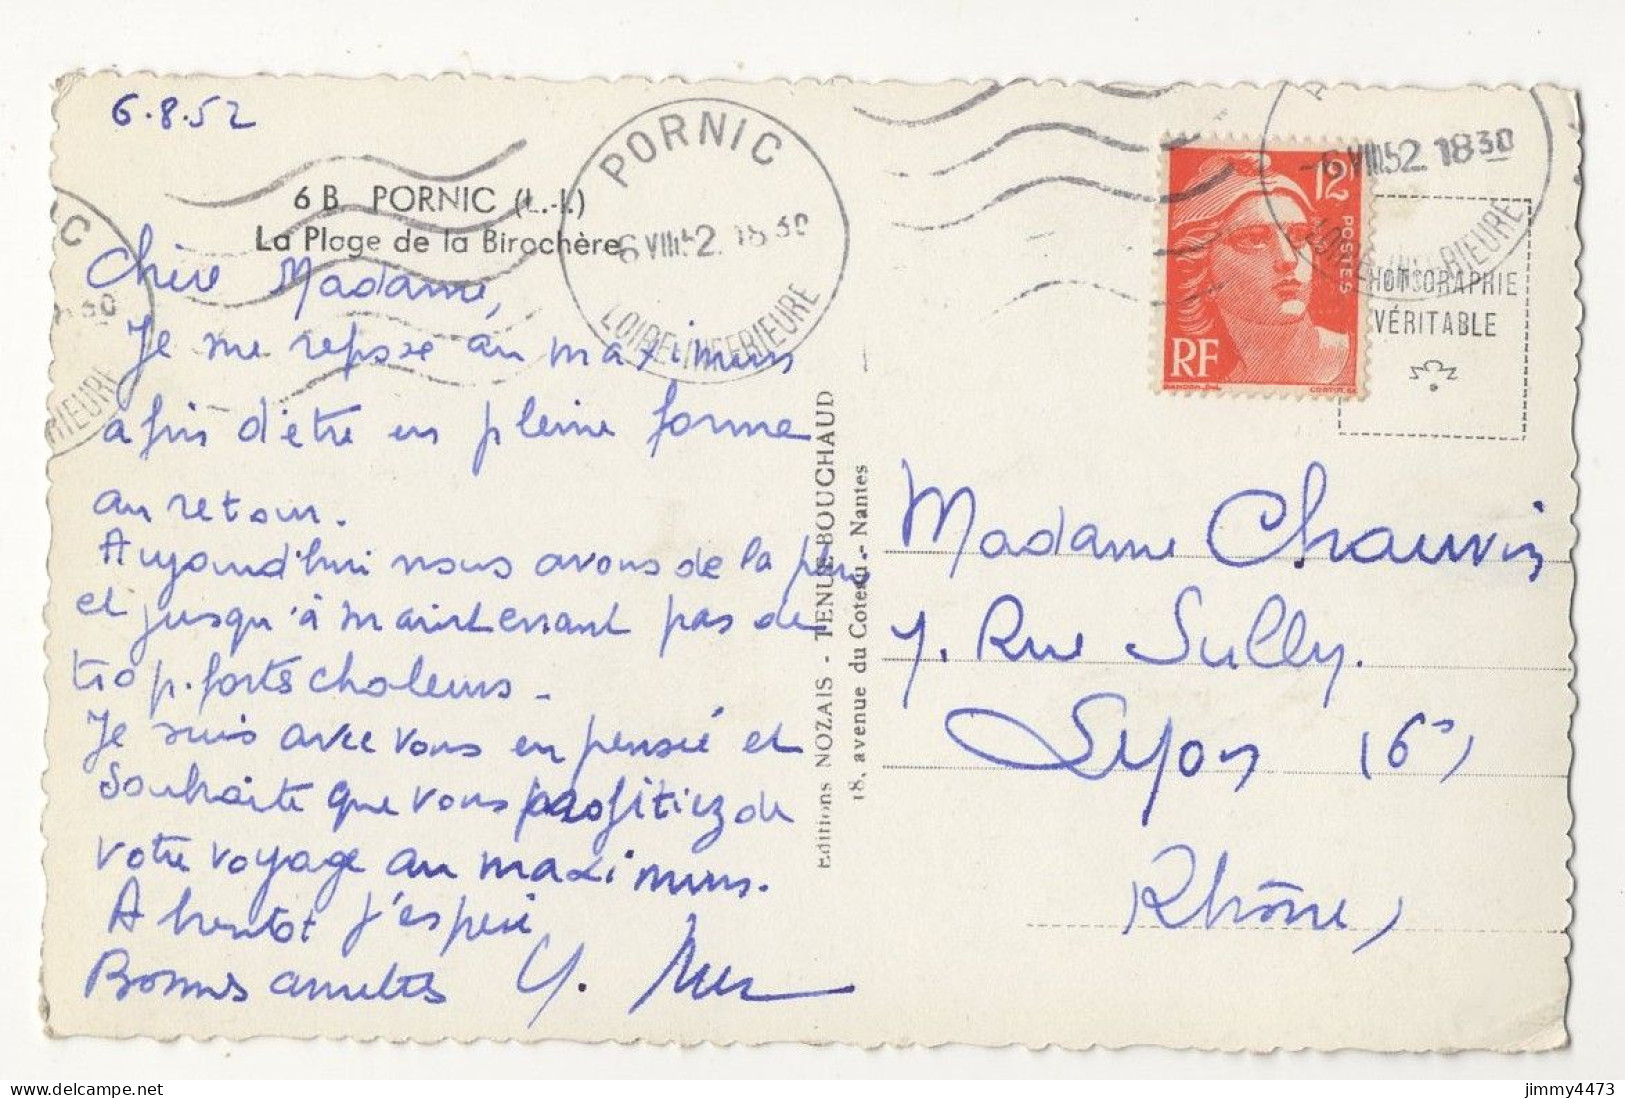 6.8.52
6 B PORNIC (L.-I.)
La Plage de la Birochère
Chère Madame,
Je me repose au maximum
afin d'être en pleine forme
au retour.
Aujourd'hui nous avons de la pluie
et jusqu'à maintenant pas de
trop fortes chaleurs -
Je suis avec vous en pensée et
souhaite que vous profitiez de
votre voyage au maximum.
A bientôt j'espère
Bonnes amitiés Y.
PORNIC
6 VIII 52 18 30
LOIRE-INFERIEURE
C
30
RIEURE
Editions NOZAIS - TENUE BOUCHAUD
18, avenue du Coteau - Nantes
12F
POSTES
RF
GANDON. DEL
CORTOT. SC
-6 VIII 52 18 30
LOIRE-INFERIEURE
PHOTOGRAPHIE
VÉRITABLE
Madame Chauvin
7. Rue Sully.
Lyon (6e)
Rhône)
jimmy4473